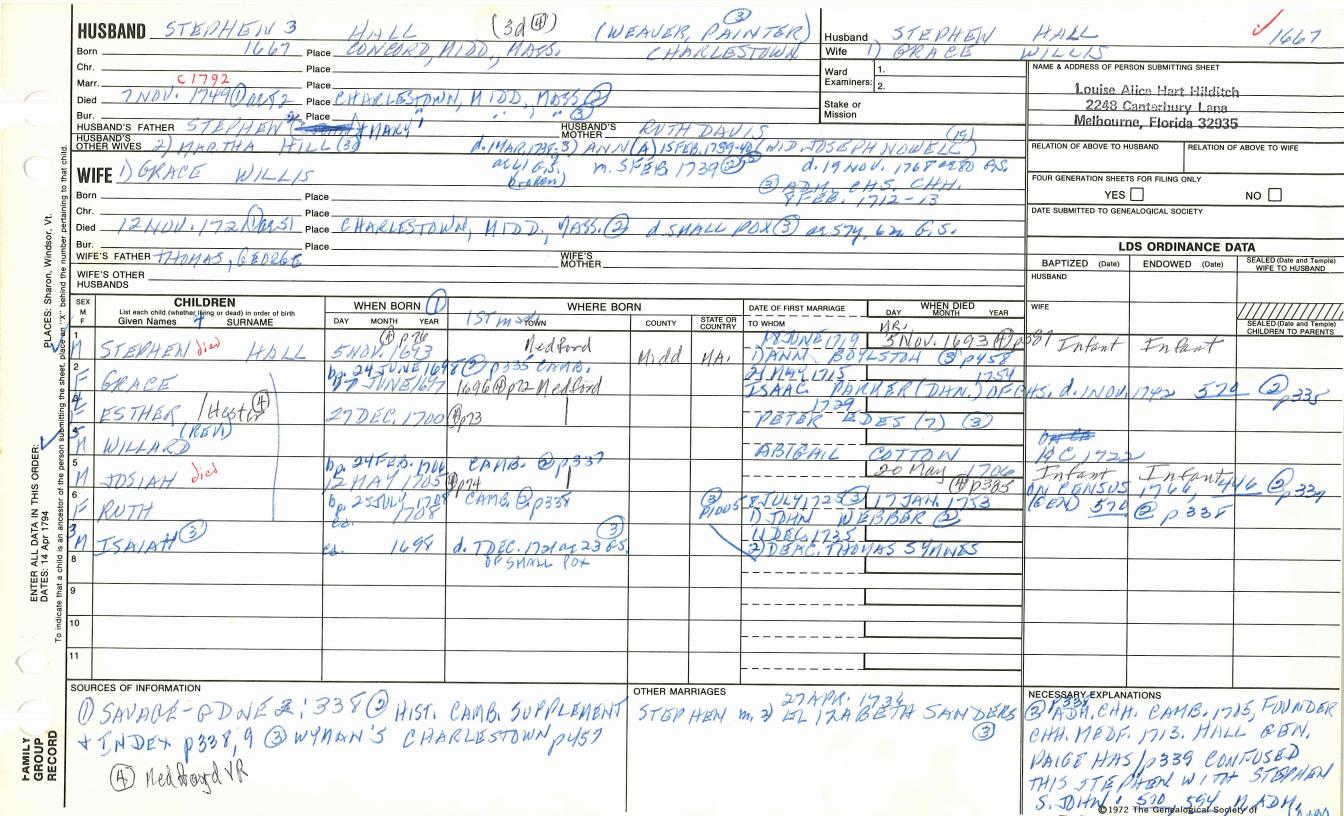 HUSBAND STEPHEN 3 HALL (3d ④) (WEAVER, PAINTER) ③
Born 1667 Place CONCORD, MIDD, MASS. CHARLESTOWN
Chr. Place
Marr. C 1792 Place
Died 7 NOV. 1749 ① Place CHARLESTOWN, MIDD, MASS ②
Bur. Place " " " ③
HUSBAND'S FATHER STEPHEN & MARY HUSBAND'S MOTHER RUTH DAVIS
HUSBAND'S OTHER WIVES 2) MARTHA HILL 3) ANN(A) (WID. JOSEPH NOWELL)
m. 5 FEB. 1739 d. 19 NOV. 1768 G.S.
broken)
WIFE 1) GRACE WILLIS
③ ADM. CHS. CHH.
9 FEB. 1712-13
Born Place
Chr. Place
Died 12 NOV. 1721 Place CHARLESTOWN, MIDD, MASS. ② d. SMALL POX ③ G.S.
Bur. Place
WIFE'S FATHER THOMAS, GEORGE WIFE'S MOTHER
WIFE'S OTHER HUSBANDS
Husband STEPHEN HALL 1667
Wife 1) GRACE WILLIS
Ward Examiners: 1.
2.
Stake or Mission
NAME & ADDRESS OF PERSON SUBMITTING SHEET
Louise Alice Hart Hilditch
2248 Canterbury Lane
Melbourne, Florida 32935
RELATION OF ABOVE TO HUSBAND RELATION OF ABOVE TO WIFE
FOUR GENERATION SHEETS FOR FILING ONLY
YES NO
DATE SUBMITTED TO GENEALOGICAL SOCIETY
LDS ORDINANCE DATA
BAPTIZED (Date) ENDOWED (Date) SEALED (Date and Temple) WIFE TO HUSBAND
HUSBAND
WIFE
SEALED (Date and Temple) CHILDREN TO PARENTS
SEX M F CHILDREN WHEN BORN ① WHERE BORN DATE OF FIRST MARRIAGE WHEN DIED
List each child (whether living or dead) in order of birth
Given Names SURNAME DAY MONTH YEAR TOWN COUNTY STATE OR COUNTRY TO WHOM DAY MONTH YEAR
1 M STEPHEN died HALL 5 NOV. 1693 ④ p76 Medford Midd MA. 18 JUNE 1719 5 Nov. 1693 ④ Infant Infant
1) ANN BOYLSTON ③ p458
2 F GRACE bp. 24 JUNE 1698 ② p335 CAMB. 21 MAY 1715 1754
27 JUNE 1697 1696 ④ p72 Medford ISAAC PARKER (DAN.) OF CHS. d. 1 NOV. 1742 574 ② p335
4 F ESTHER / Hester ④ 27 DEC. 1700 ④ p73 1729
PETER EDES (7) (3)
5 M (REV) WILLARD ABIGAIL COTTON HC 1722
5 M JOSIAH died bp. 24 FEB. 1706 CAMB. ② p337 20 May 1706 Infant Infant
12 MAY 1705 ④ p74 ④ p335
6 F RUTH bp. 25 JULY 1708 CAMB. ② p338 8 JULY 1725 ③ 17 JAN. 1753
ca. 1708 1) JOHN WEBBER ②
(GEN) 570 ② p338
3 M ISAIAH ③ ca. 1698 d. 7 DEC. 1721 G.S. ③ 11 DEC. 1735
OF SMALL POX 2) DEAC. THOMAS SYMMES
8
9
10
11
SOURCES OF INFORMATION
① SAVAGE-GDNE 2:338 ② HIST. CAMB. SUPPLEMENT
& INDEX p338,9 ③ WYMAN'S CHARLESTOWN p457
④ Medford VR
OTHER MARRIAGES
27 APR. 1736
STEPHEN m. 2) ELIZABETH SANDERS
③
NECESSARY EXPLANATIONS
② p338 ADM. CHH. CAMB. 1705, FOUNDER
CHH. MEDF. 1713. HALL GEN.
PAIGE HAS p339 CONFUSED
THIS STEPHEN WITH STEPHEN
S. JOHN: 570, 594
©1972 The Genealogical Society of
PLACES: Sharon, Windsor, Vt.
ENTER ALL DATA IN THIS ORDER:
DATES: 14 Apr 1794
To indicate that a child is an ancestor of the person submitting the sheet, place an "X" behind the number pertaining to that child.
FAMILY
GROUP
RECORD